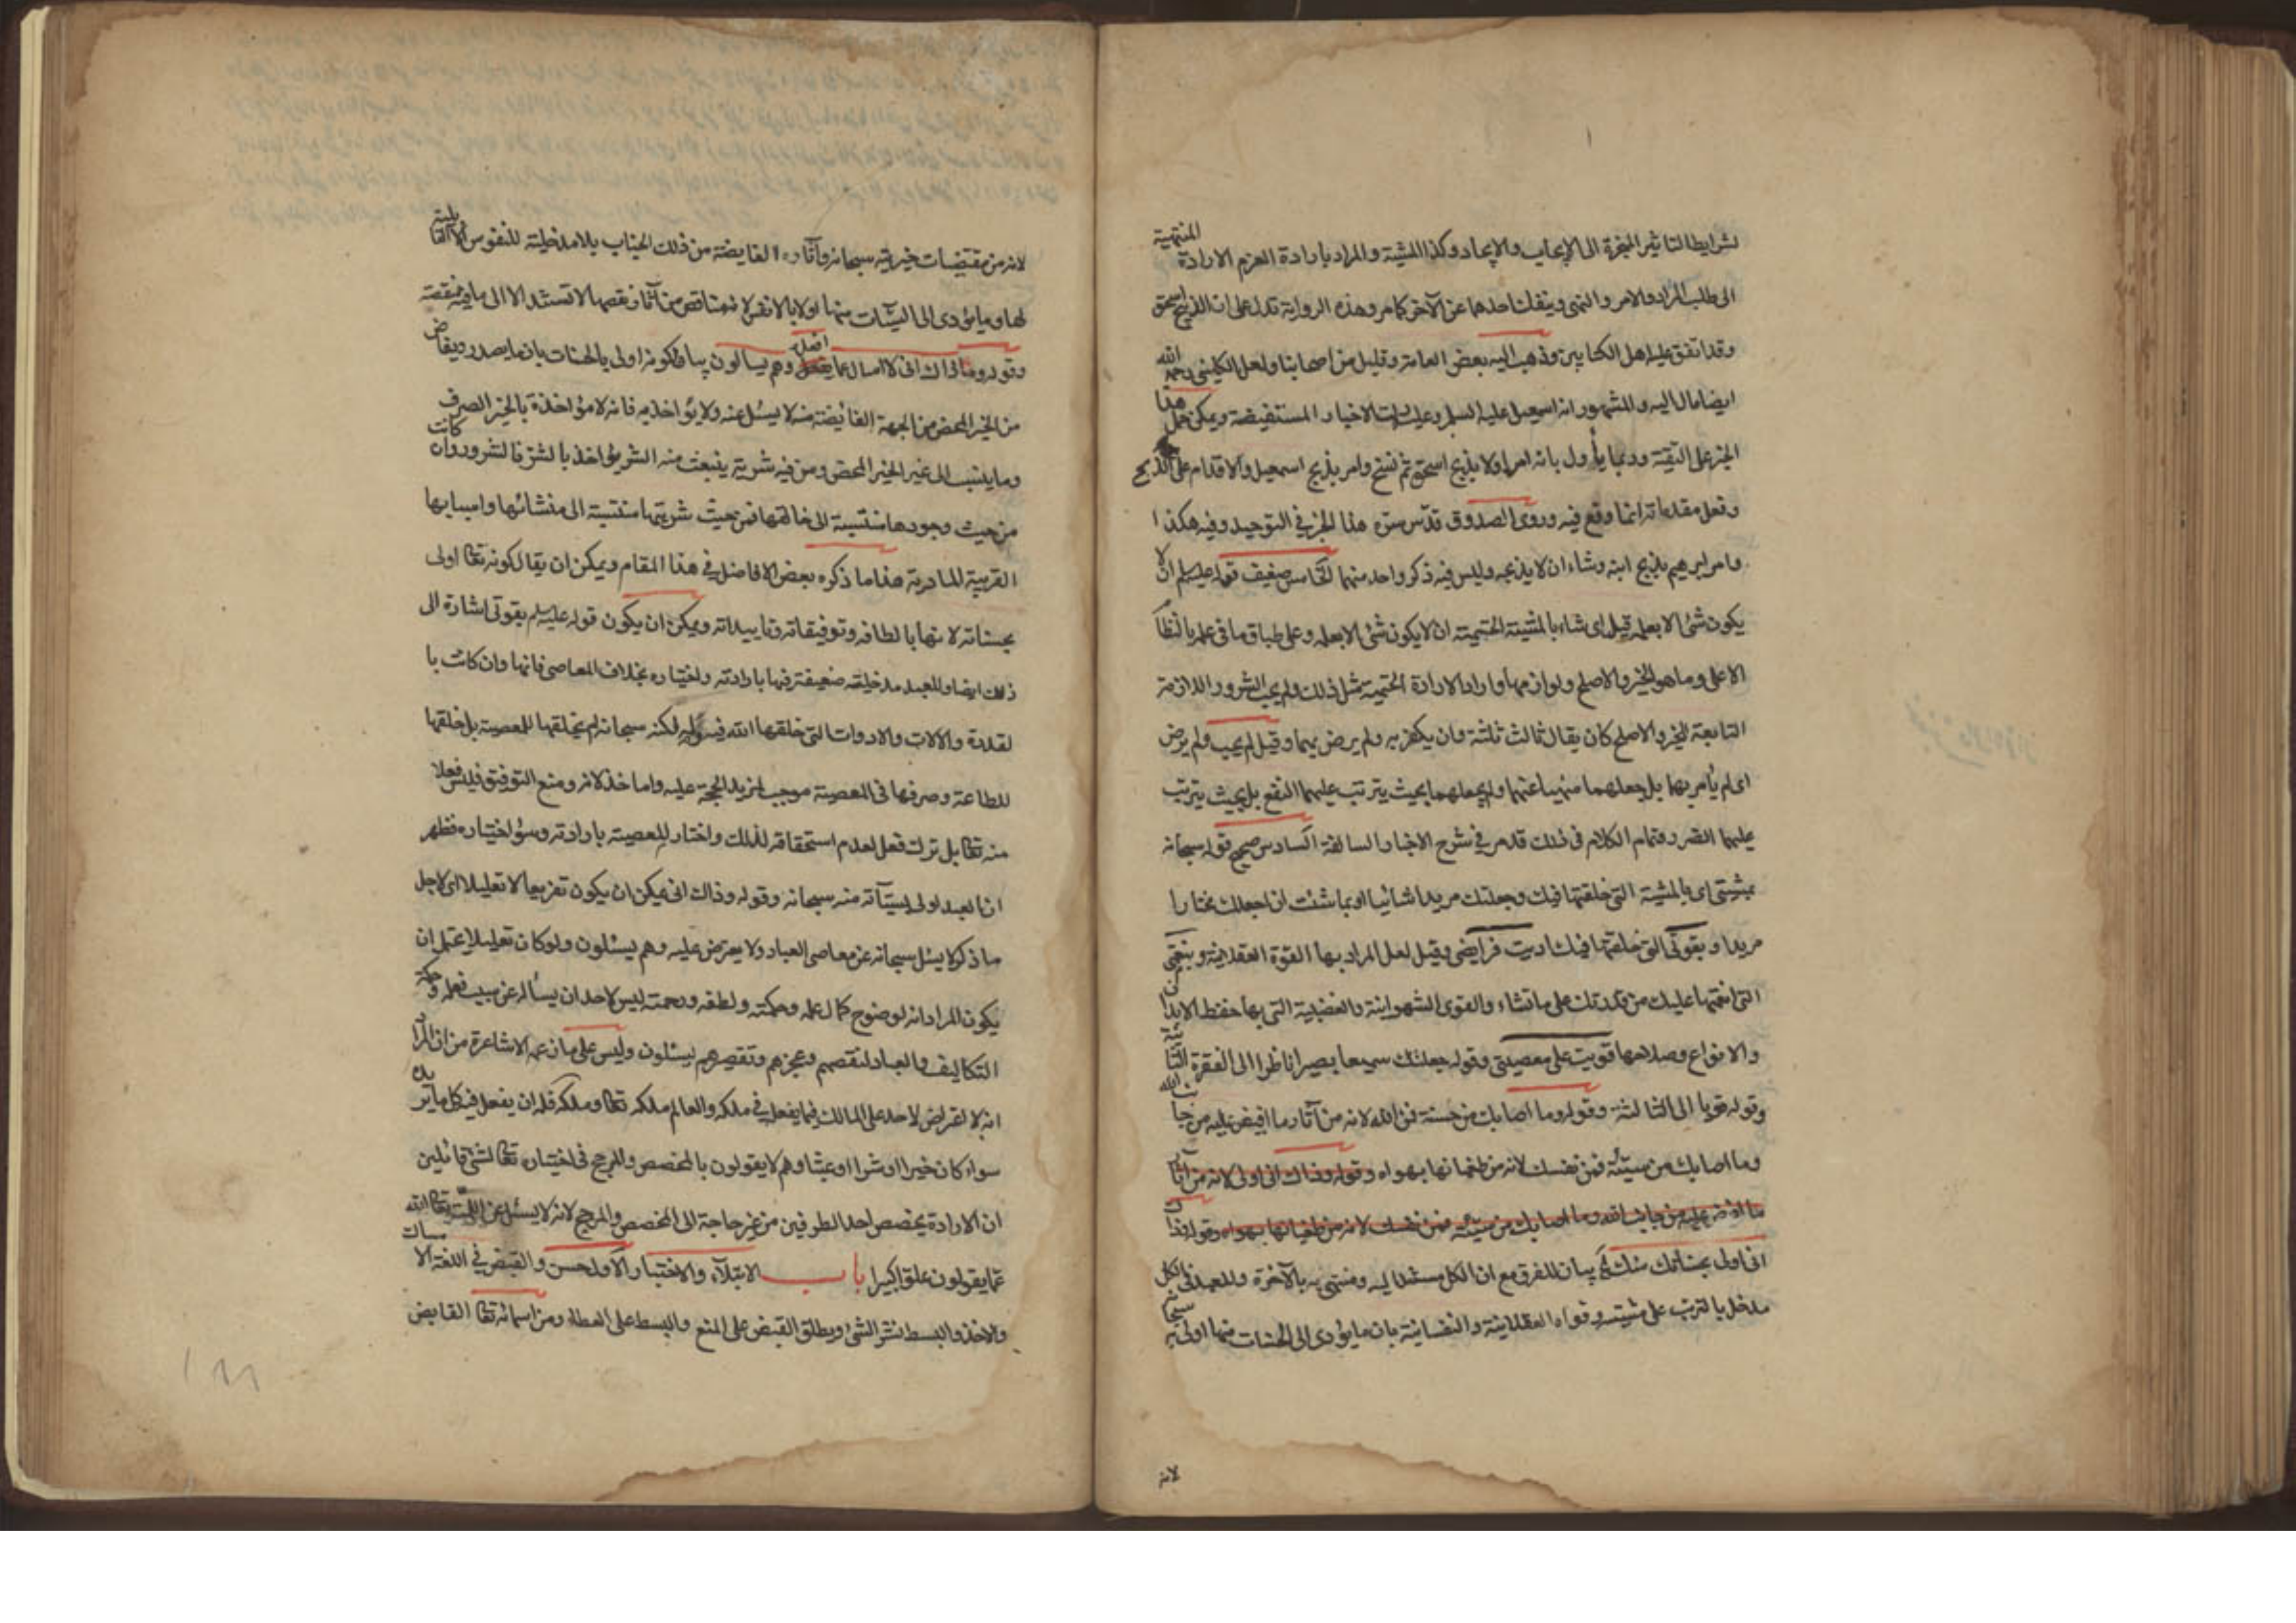 لشرايط التاثير المنجزة الى الايجاب والايجاد وكذا المشية والمراد بارادة العزم الارادة المنتهية
الى طلب المراد والامر والنهى وينفك احدهما عن الآخر كما مر وهذه الرواية تدل على ان الذبيح اسحق
وقد اتفق عليه اهل الكتابين وذهب اليه بعض العامة وقليل من اصحابنا ولعل الكلينى رحمه الله
ايضا مال اليه والمشهور انه اسمعيل عليه السلم وعليه دلت الاخبار المستفيضة ويمكن حمل هذا
الخبر على التقية وربما يأول بانه امر اولا بذبح اسحق ثم نسخ وامر بذبح اسمعيل والاقدام على الذبح
وفعل مقدماته انما وقع فيه وروى الصدوق قدس سره هذا الخبر في التوحيد وفيه هكذا
وامر ابرهيم بذبح ابنه وشاء ان لا يذبحه وليس فيه ذكر واحد منهما الخامس ضعيف قوله عليه السلم ان لا
يكون شئ الا بعلمه قيل اى شاء بالمشية الحتمية ان لا يكون شئ الا بعلمه وعلى طباق ما فى علمه بالنظا
الاعلى وما هو الخير والاصلح ولوازمها واراد الارادة الحتمية مثل ذلك ولم يحب الشرور اللازمة
التابعة للخير والاصلح كان يقال ثالث ثلثة وان يكفر به ولم يرض بهما وقيل لم يحب ولم يرض
اى لم يأمر بهما بل جعلهما منهيا عنهما ولم يجعلهما بحيث يترتب عليهما النفع بل بحيث يترتب
عليهما الضرر وتمام الكلام فى ذلك قد مر في شرح الاخبار السالفة السادس صحيح قوله سبحانه
بمشيتى اى بالمشية التى خلقتها فيك وجعلتك مريدا شائيا او بما شئت ان اجعلك مختارا
مريدا وبقوتى التى خلقتها فيك اديت فرايضى وقيل لعل المراد بها القوة العقلانية وبنعمتى
التى انعمتها عليك من قدرتك على ما تشاء والقوى الشهوانية والغضبية التى بها حفظ الابدان
والانواع وصلاحها قويت على معصيتى وقوله جعلتك سميعا بصيرا ناظر الى الفقرة الثانية
وقوله قويا الى الثالثة وقوله وما اصابك من حسنة فمن الله لانه من آثار ما افيض عليه من جانب الله
وما اصابك من سيئة فمن نفسك لانه من طغيانها بهواه وقوله وذاك انى اولى لانه من آثار
ما افيض عليه من جانب الله وما اصابك من سيئة فمن نفسك لانه من طغيانها بهواه وقوله وذاك
انى اولى بحسناتك منك بيان للفرق مع ان الكل مستند اليه ومنتهى به بالآخرة وللعبد فى الكل
مدخل بالترتب على مشيته وقواه العقلانية والنفسانية بان ما يؤدى الى الحسنات منها اولى به سبحانه
لانه
لانه من مقتضيات خيريته سبحانه وآثاره الفايضة من ذلك الجناب بلا مدخلية للنفوس الا القابلية
لها وما يؤدى الى السيئات منها اولى بالانفس لانها مناقص من آثار نقصها لا تستند الا الى ما فيه منقصة
وقوله وذاك انى لا اسال عما افعل وهم يسالون بيان لكونه اولى بالحسنات بان ما يصدر ويفاض
من الخير المحض من الجهة الفائضة منه لا يسئل عنه ولا يؤاخذ به فانه لا مؤاخذة بالخير الصرف
وما ينسب الى غير الخير المحض ومن فيه شرية ينبعث منه الشر يؤاخذ بالشر فالشرور وان كانت
من حيث وجودها منتسبة الى خالقها فمن حيث شريتها منتسبة الى منشائها واسبابها
القريبة المادية هذا ما ذكره بعض الافاضل في هذا المقام ويمكن ان يقال كونه تعا اولى
بحسناته لانها بالطافه وتوفيقاته وتاييداته ويمكن ان يكون قوله عليه السلم بقوتى اشارة الى
ذلك ايضا وللعبد مدخلية ضعيفة فيها بارادته واختياره بخلاف المعاصى فانها وان كانت با
لقدرة والالات والادوات التى خلقها الله فيه وله لكنه سبحانه لم يخلقها للمعصية بل خلقها
للطاعة وصرفها فى المعصية موجب لمزيد الحجة عليه واما خذلانه ومنع التوفيق فليس فعلا
منه تعا بل ترك فعل لعدم استحقاقه لذلك واختار المعصية بارادته وسوء اختياره فظهر
ان العبد اولى بسيئاته منه سبحانه وقوله وذاك انى يمكن ان يكون تفريعا لا تعليلا اى لاجل
ما ذكر لا يسئل سبحانه عن معاصى العباد ولا يعترض عليه وهم يسئلون ولو كان تعليلا يحتمل ان
يكون المراد انه لوضوح كمال علمه وحكمته ولطفه ورحمته ليس لاحد ان يسأله عن سبب فعله وحكمة
التكاليف والعباد لنقصهم وعجزهم وتقصيرهم يسئلون وليس على ما زعمه الاشاعرة من ان المراد
انه لا اعتراض لاحد على المالك فيما يفعل في ملكه والعالم ملكه تعا وملكه فله ان يفعل فيه كل ما يريده
سواء كان خيرا او شرا او عبثا وهم لا يقولون بالمخصص والمرجح فى اختياره تعا لشئ قائلين
ان الارادة يخصص احد الطرفين من غير حاجة الى المخصص والمرجح لانه لا يسئل عن اللمية تعالى الله
عما يقولون علوا كبيرا باب الابتلاء والاختبار الاول حسن والقبض في اللغة الامساك
والاخذ والبسط نشر الشئ ويطلق القبض على المنع والبسط على العطاء ومن اسمائه تعا القابض